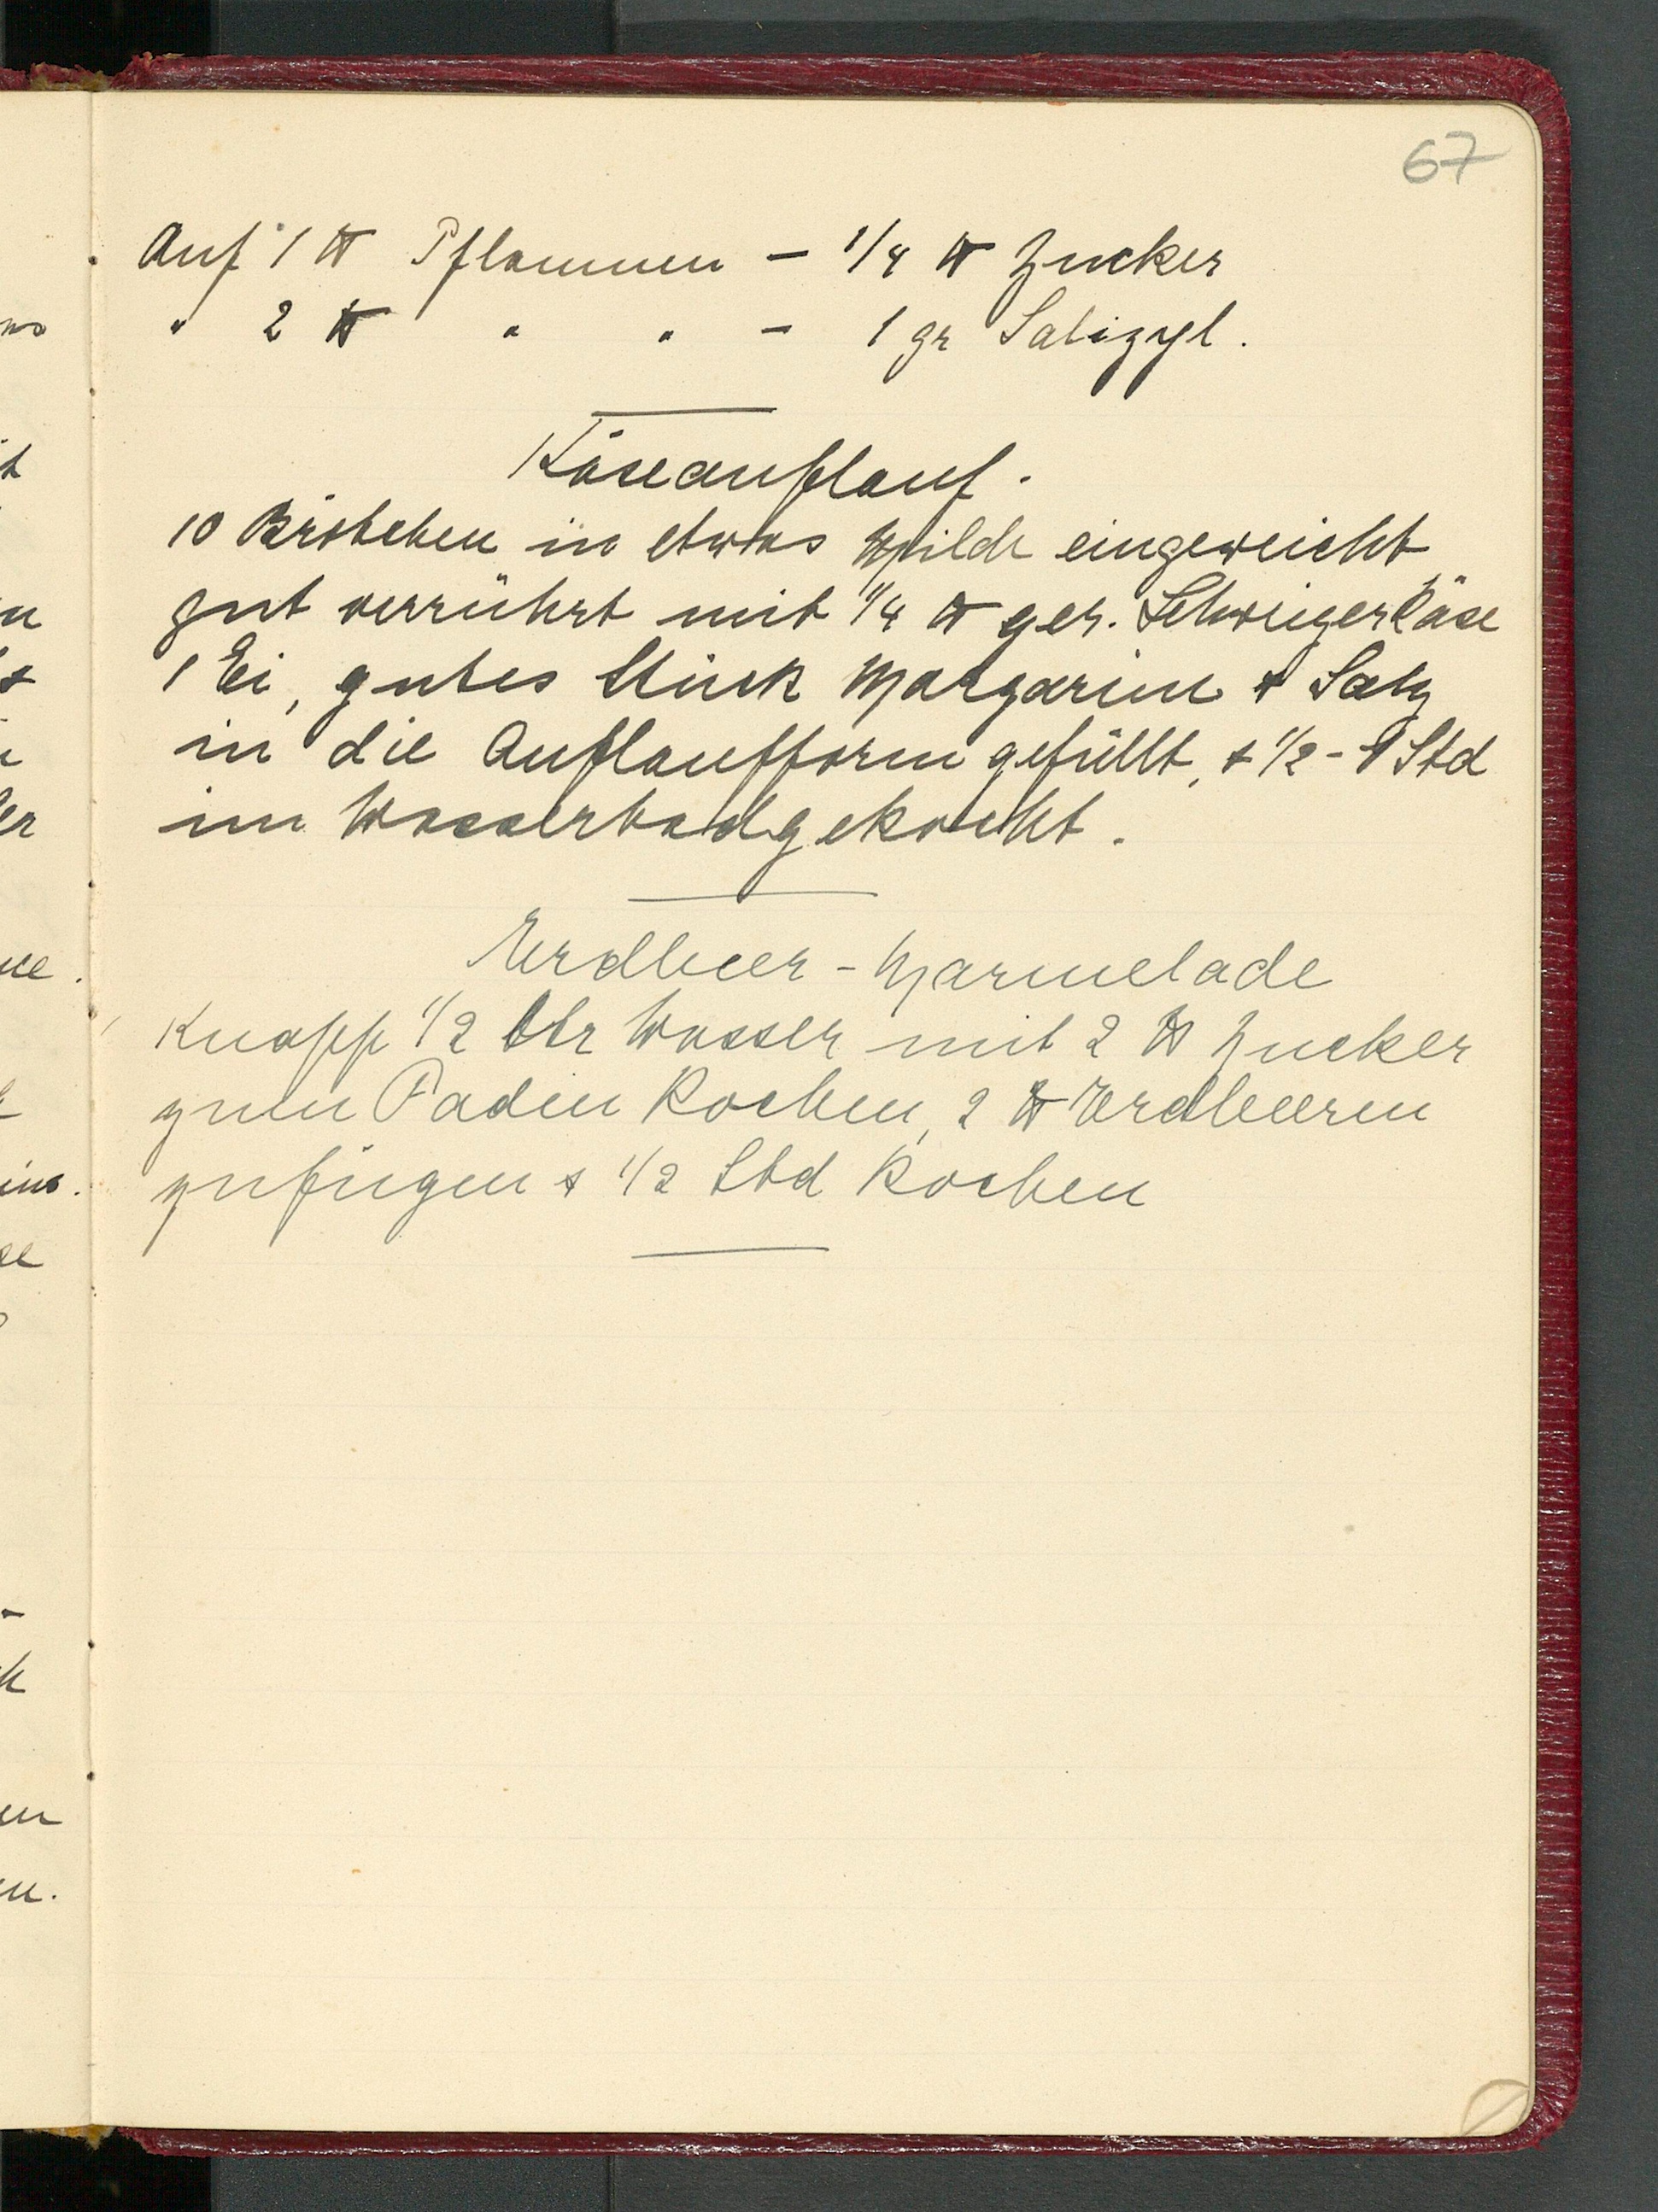 67
Auf 1 ℔ Pflaumen – 1/4 ℔ Zucker
" 2 ℔ " " – 1 gr Salizyl.
Käseauflauf.
10 Brötchen in etwas Milch eingeweicht
gut verrührt mit 1/4 ℔ ger. Schweizerkäse
1 Ei, gutes Stück Margarine + Salz
in die Auflaufform gefüllt, + 1/2 - 1 Std
im Wasserbad gekocht.
Erdbeer-Marmelade
Knapp 1/2 Ltr Wasser mit 2 ℔ Zucker
zum Faden kochen, 2 ℔ Erdbeeren
zufügen + 1/2 Std kochen